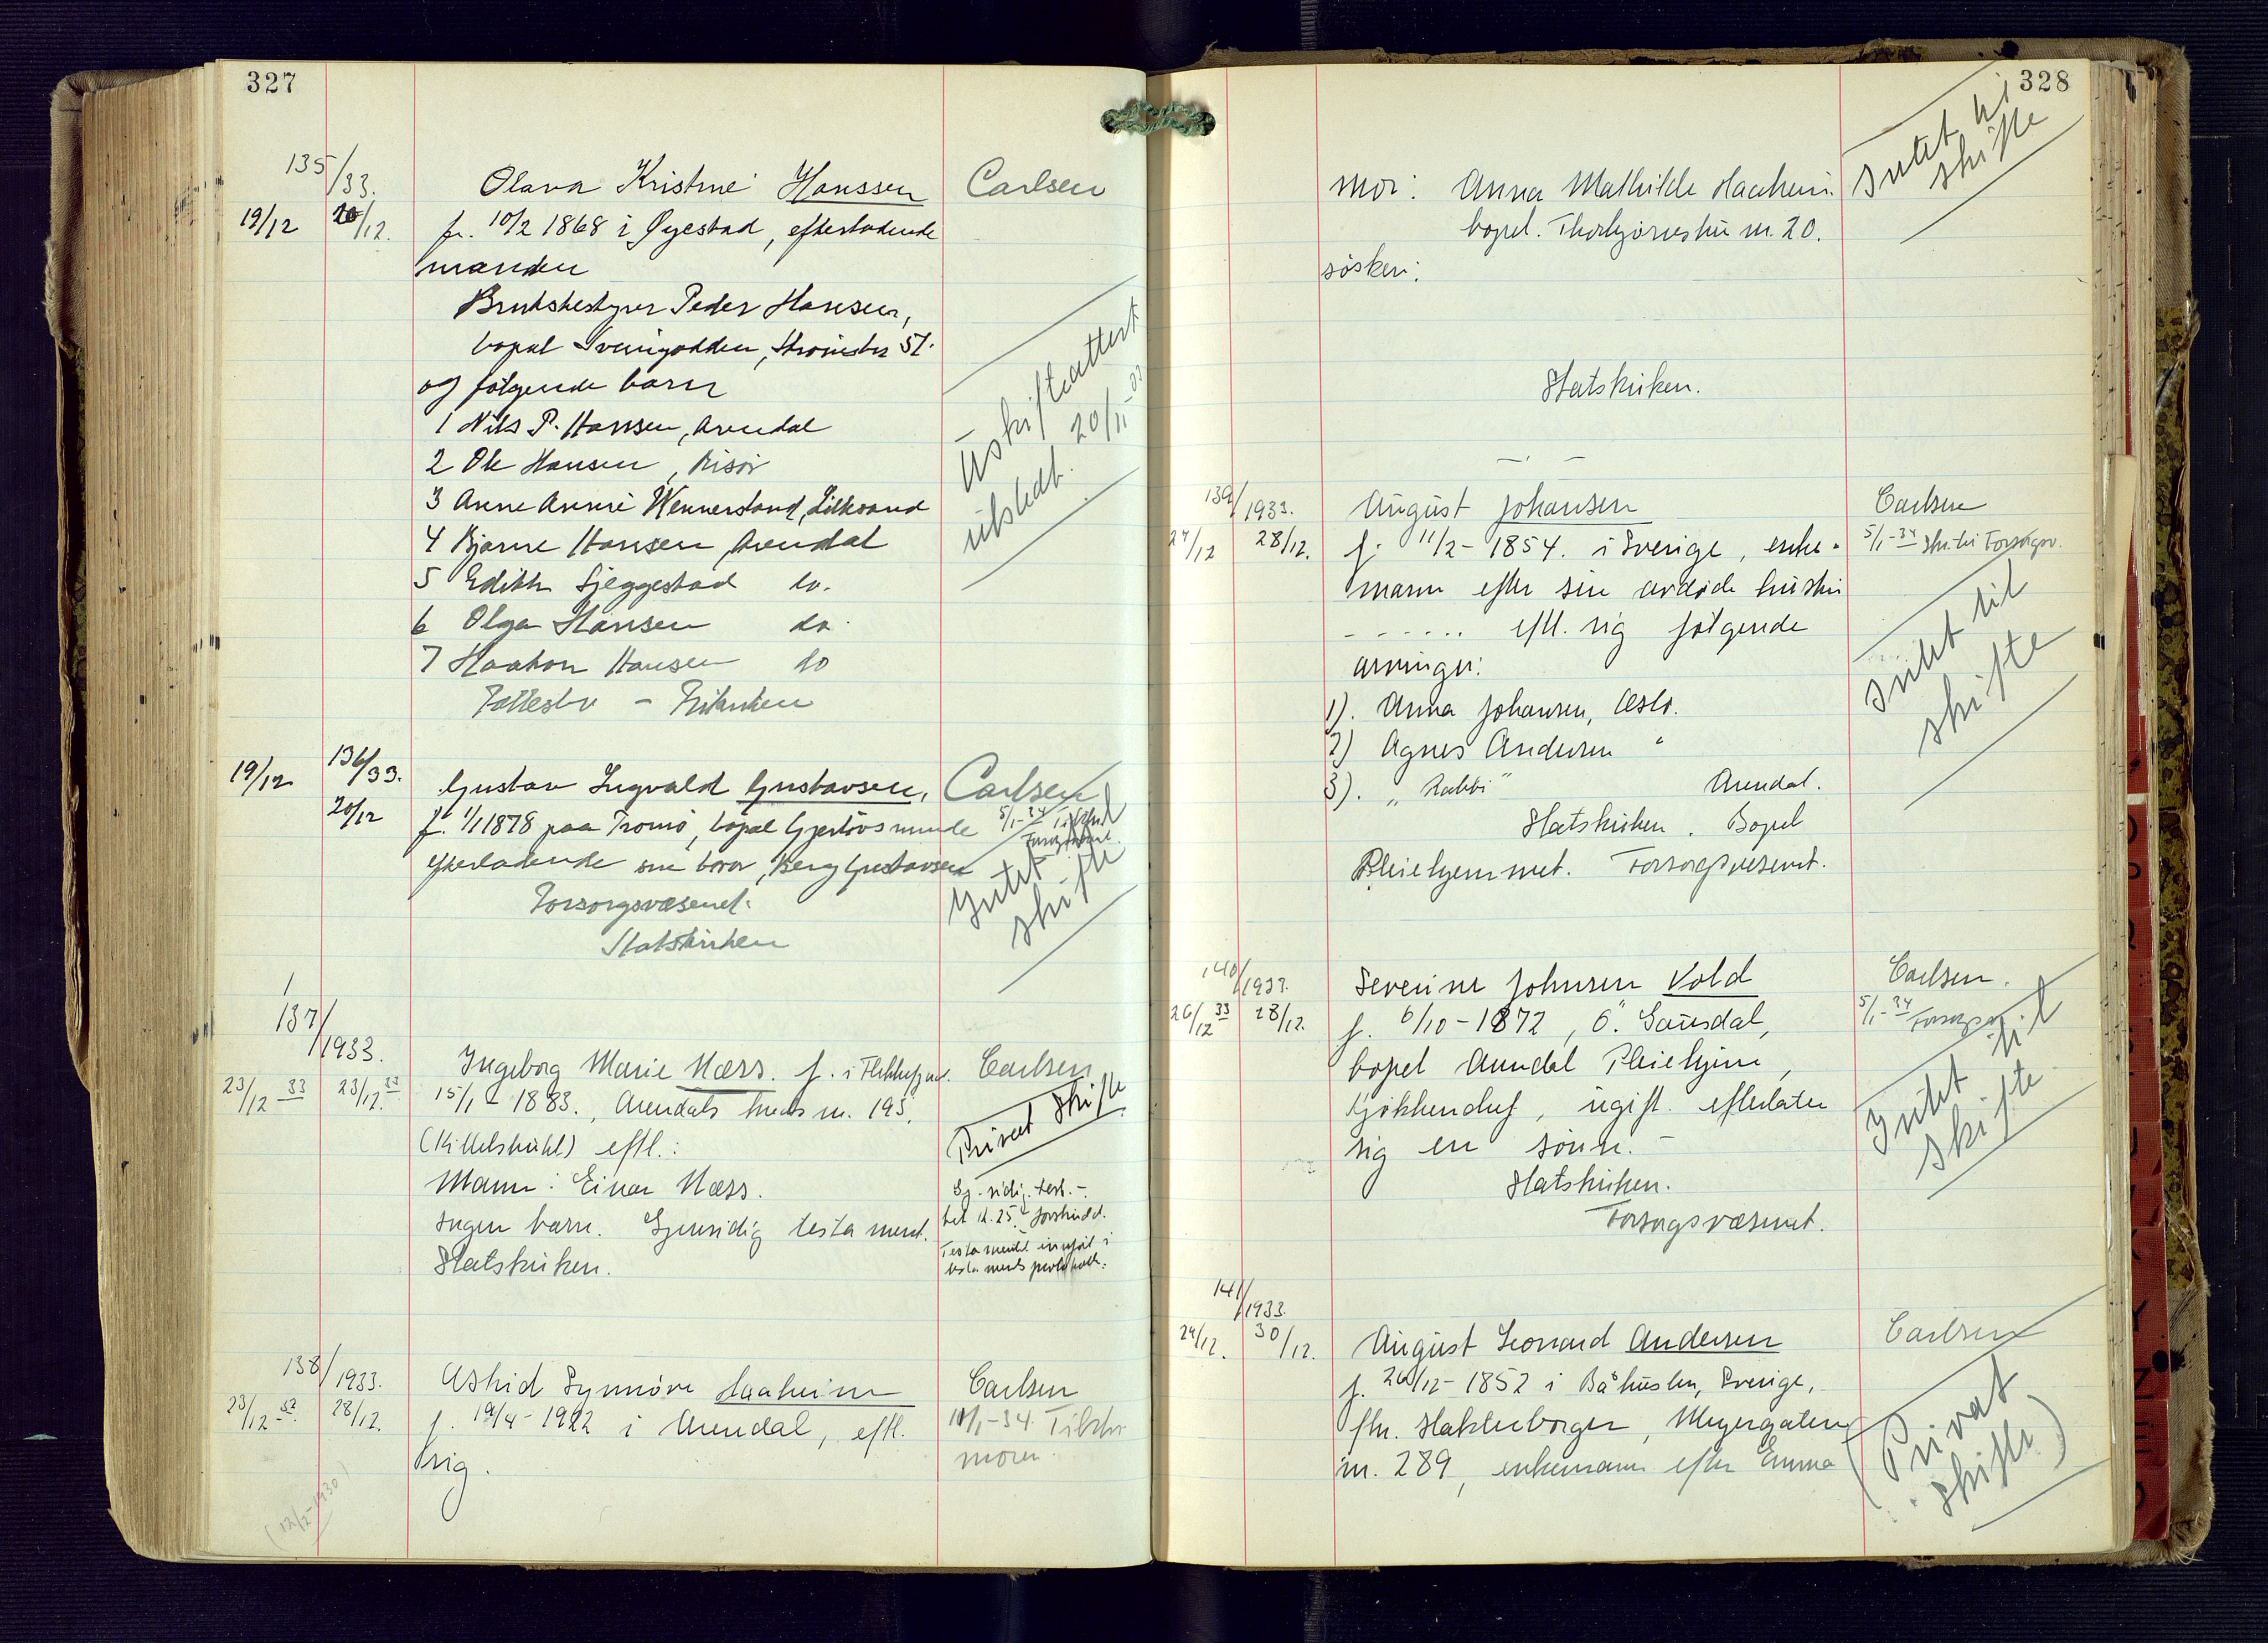 327
135/33.
19/12
20/12.
Olava Kristine Hanssen
Carlsen
f. 10/2 1868 i Øyestad, efterladende
manden
Bruksbestyrer Peder Hansen,
bopæl
og følgende barn
1 Nils P. Hansen, Arendal
2 Ole Hansen, Risør
3 Anne Wennerstand, Lillesand
4 Bjarne Hansen, Arendal
5 Edith Sjeggestad do.
6 Olga Hansen do.
7 Haakon Hansen do
Frikirken
Uskifteattest
utstedt. 20/11
19/12
136/33.
20/12
Gustav Ingvald Gustavsen,
Carlsen
f. 1/1 1878 paa Tromø, bopæl
5/1-34
efterladende sin bror, Berg Gustavsen
Forsorgsvæsenet.
Statskirken
Intet til
skifte
137/1933.
23/12 33
23/12 33
Ingeborg Marie Næss. f. i Flekkefjord.
Carlsen
15/1 - 1883., Arendals hus nr. 195.
(Kittelsbukt) eftl.:
Mann: Einar Næss.
Ingen barn. Gjensidig testament.
Statskirken.
Privat skifte
Gj.sidig. test.-
bet kr. 25. forskudd.
Testamentet innført i
testaments protokoll.
138/1933.
23/12
28/12.
Astrid Synnöve Haaheim
Carlsen
f. 19/4 - 1922 i Arendal, eftl.
11/1-34. Tilskr
sig.
moren
(12/2-1930)
328
mor: Anna Mathilde Haaheim.
bopel. nr. 20.
søsken:
Statskirken.
Intet til
skifte
139/1933.
27/12
28/12.
August Johansen
Carlsen
f. 11/2 - 1854. i Sverige, enke-
5/1-34 skr. til Forsorgsv.
mann efter sin avdøde hustru
- - - - - - eftl. sig følgende
arvinger:
1). Anna Johansen, Oslo.
2) Agnes Andersen "
3). " Rabbi " Arendal.
Statskirken. Bopel
Pleiehjemmet. Forsorgsvesenet.
Intet til
skifte
140/1933.
26/12 33
28/12.
Severine Johnsen Vold
Carlsen.
f. 6/10 - 1872, Ö. Gausdal,
5/1-34 Forsorgsv
bopel Arendal Pleiehjem,
kjøkkenchef, ugift. efterlater
sig en sønn.-
Statskirken.
Forsorgsvæsenet.
Intet til
skifte
141/1933.
29/12.
30/12.
August Leonard Andersen
Carlsen
f. 26/12 - 1852 i Båhuslen, Sverige,
fhv. Meyergaten
nr. 289, enkemann efter Emma
(Privat
skifte)